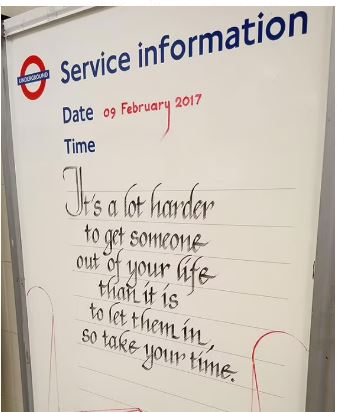 UNDERGROUND
Service information
Date 09 February 2017
Time
It's a lot harder
to get someone
out of your life
than it is
to let them in,
so take your time.